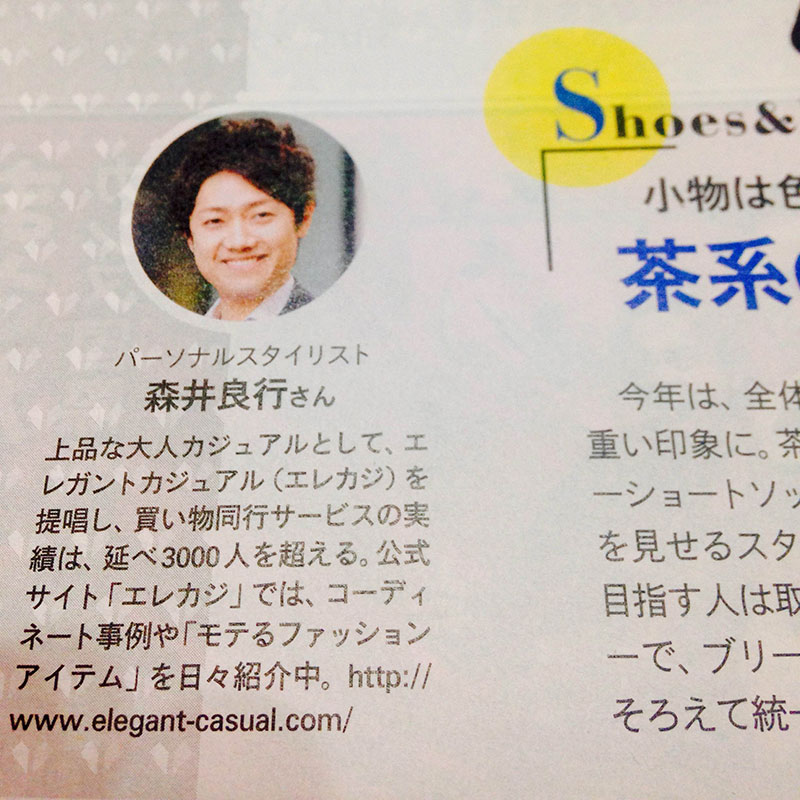 パーソナルスタイリスト
森井良行さん
上品な大人カジュアルとして、エ
レガントカジュアル(エレカジ)を
提唱し、買い物同行サービスの実
績は、延べ3000人を超える。公式
サイト「エレカジ」では、コーディ
ネート事例や「モテるファッション
アイテム」を日々紹介中。http://
www.elegant-casual.com/
Shoes&
小物は色
茶系
今年は、全体
重い印象に。茶
ーショートソッ
を見せるスタ
目指す人は取
ーで、ブリー
そろえて統一